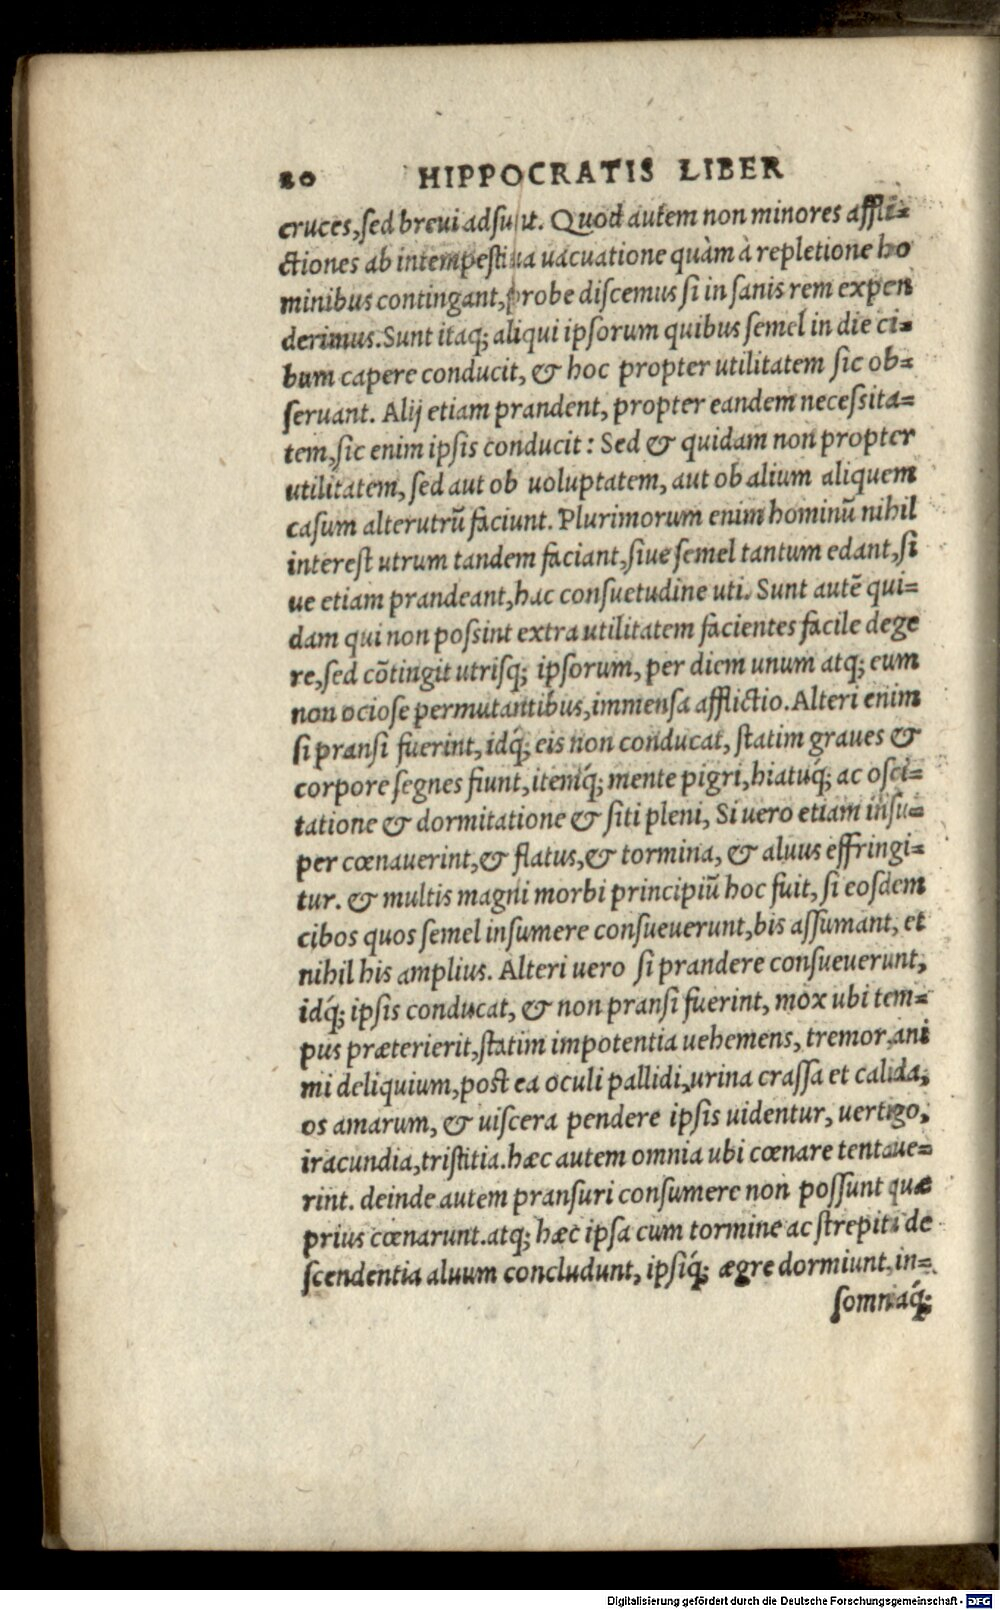 80 HIPPOCRATIS LIBER
cruces, sed brevi adsunt. Quod autem non minores affli=
ctiones ab intempestiua uacuatione quàm à repletione ho
minibus contingant, probe discemus si in sanis rem expen
derimus. Sunt itaq; aliqui ipsorum quibus semel in die ci=
bum capere conducit, & hoc propter utilitatem sic ob=
seruant. Alij etiam prandent, propter eandem necessita=
tem, sic enim ipsis conducit: Sed & quidam non propter
utilitatem, sed aut ob uoluptatem, aut ob alium aliquem
casum alterutrũ faciunt. Plurimorum enim hominũ nihil
interest utrum tandem faciant, siue semel tantum edant, si
ue etiam prandeant, hac consuetudine uti. Sunt autẽ qui=
dam qui non possint extra utilitatem facientes facile dege
re, sed cõtingit utrisq; ipsorum, per diem unum atq; eum
non ociose permutantibus, immensa afflictio. Alteri enim
si pransi fuerint, idq́; eis non conducat, statim graues &
corpore segnes fiunt, itemq́; mente pigri, hiatuq́; ac osci=
tatione & dormitatione & siti pleni, Si uero etiam insu=
per cœnauerint, & flatus, & tormina, & aluus effringi=
tur. & multis magni morbi principiũ hoc fuit, si eosdem
cibos quos semel insumere consueuerunt, bis assumant, et
nihil his amplius. Alteri uero si prandere consueuerunt,
idq́; ipsis conducat, & non pransi fuerint, mox ubi tem=
pus præterierit, statim impotentia uehemens, tremor, ani
mi deliquium, post ea oculi pallidi, urina crassa et calida,
os amarum, & uiscera pendere ipsis uidentur, uertigo,
iracundia, tristitia. hæc autem omnia ubi cœnare tentaue=
rint. deinde autem pransuri consumere non possunt quæ
prius cœnarunt. atq; hæc ipsa cum tormine ac strepitu de
scendentia aluum concludunt, ipsiq́; ægre dormiunt, in=
somniaq́;
Digitalisierung gefördert durch die Deutsche Forschungsgemeinschaft - DFG